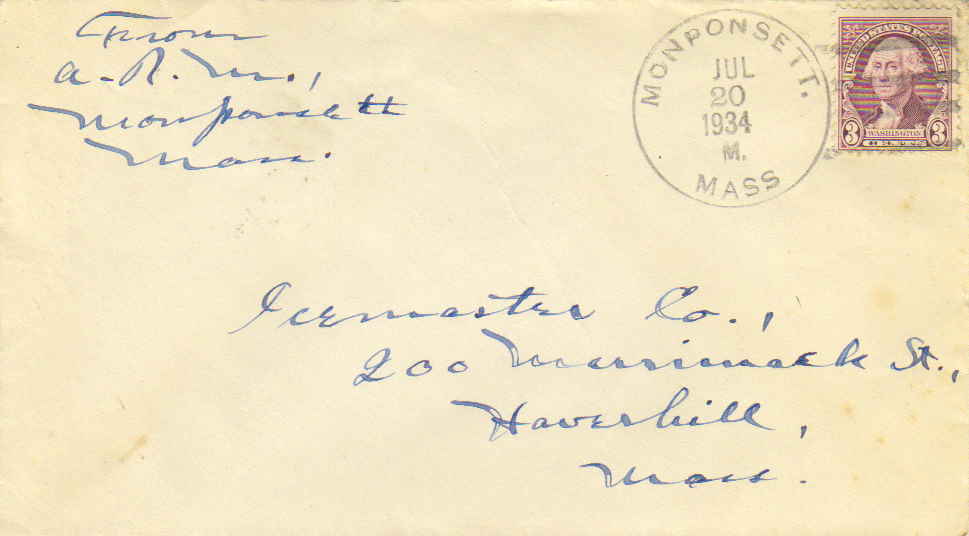 From
A. R. M.,
Monponsett
Mass.
MONPONSETT.
JUL
20
1934
M.
MASS
UNITED STATES POSTAGE
3 WASHINGTON 3
Icemaster Co.,
200 Merrimack St.,
Haverhill,
Mass.